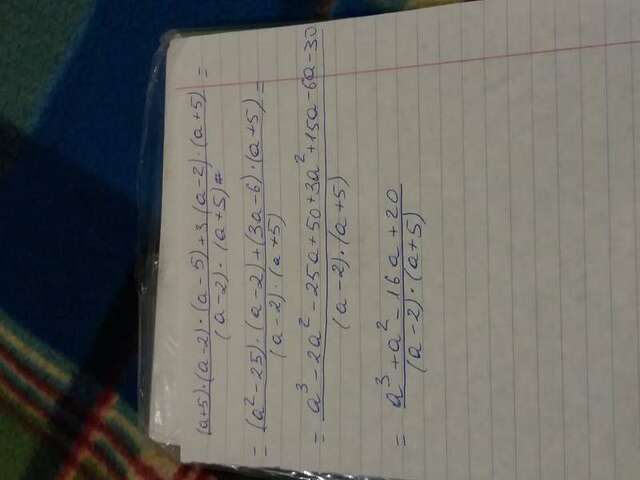 (a+5)·(a-2)·(a-5)+3(a-2)·(a+5) =
(a-2)·(a+5)
= (a²-25)·(a-2)+(3a-6)·(a+5) =
(a-2)·(a+5)
= a³-2a²-25a+50+3a²+15a-6a-30
(a-2)·(a+5)
= a³+a²-16a+20
(a-2)·(a+5)